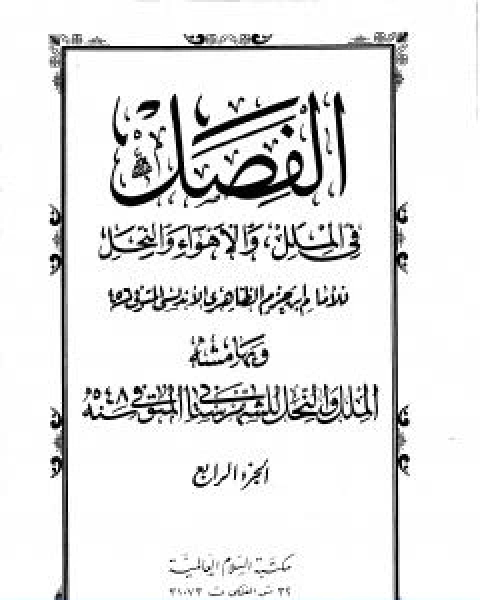 الفصل
في الملل، والأهواء والنحل
للأمام ابن حزم الظاهري الأندلسي المتوفى ٤٥٦
وبهامشه
الملل والنحل للشهرستاني المتوفى سنة ٥٤٨
الجزء الرابع
مكتبة السلام العالمية
٣٢ ش الفلكى ت ٣١٠٧٣